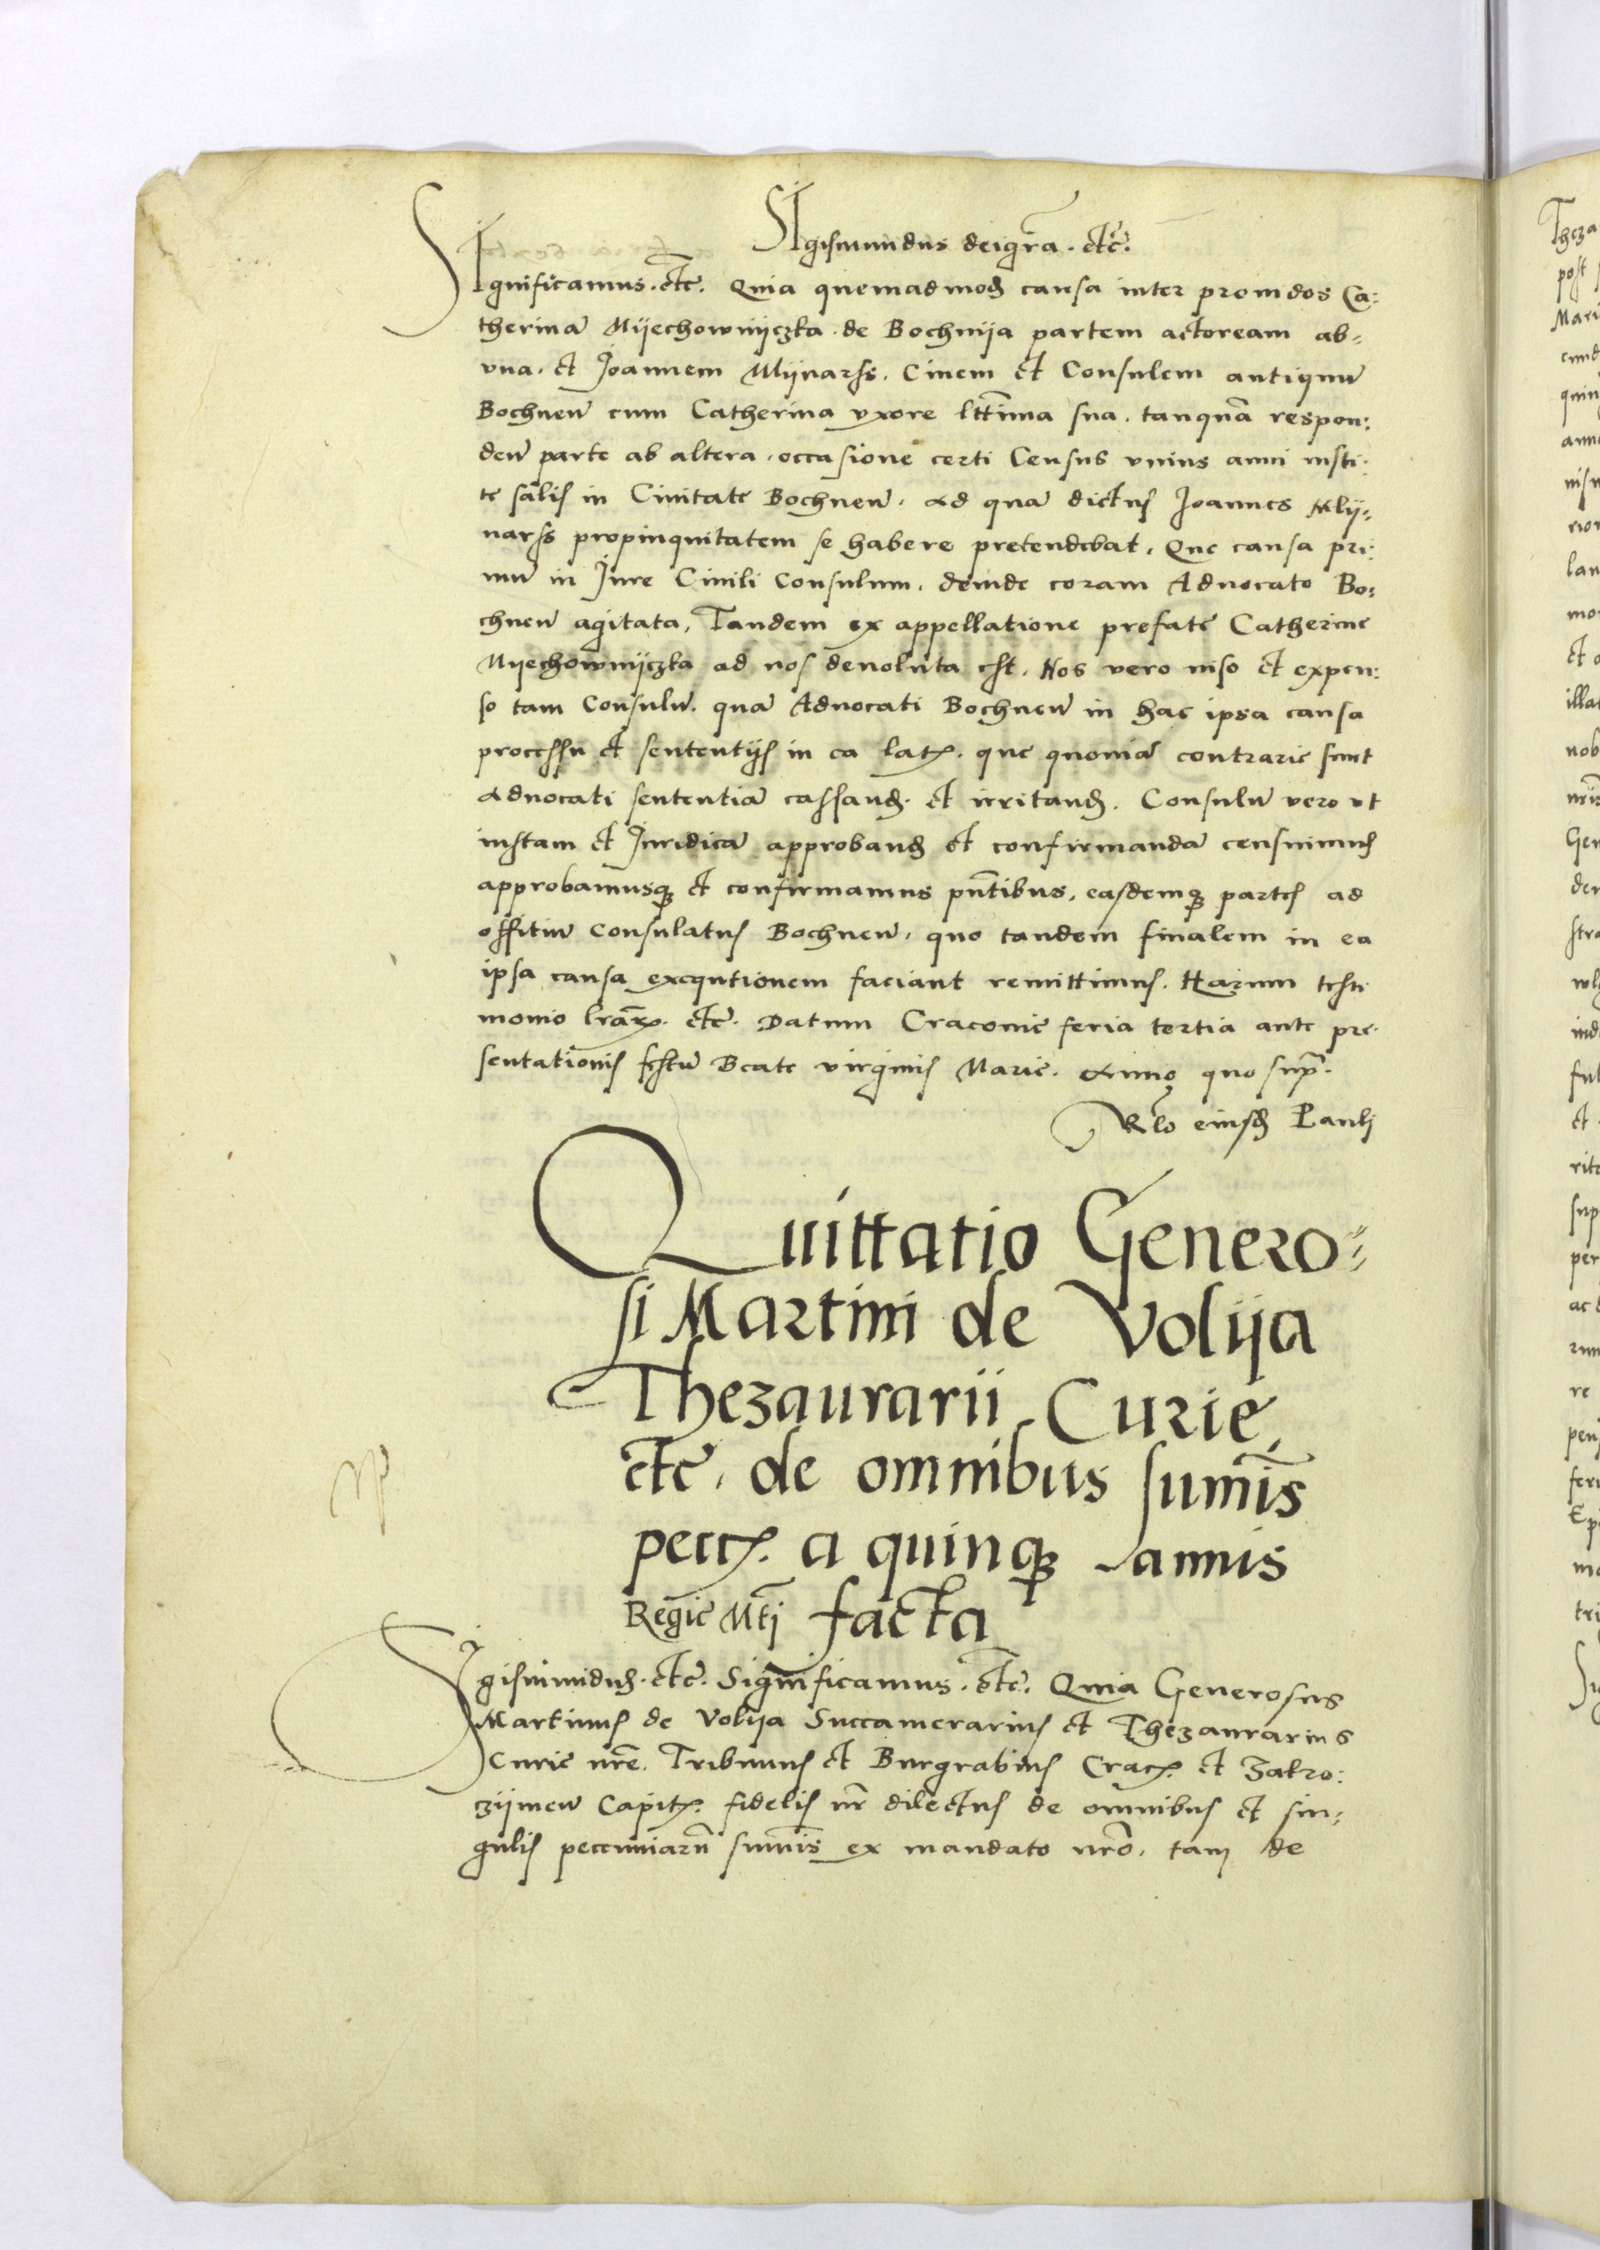 SIgismundus dei gra. etc.
SIgnificamus. etc. Quia quemadmod causa inter prouidos Ca:
therina Myechownyczka de Bochnya partem actoream ab-
vna. et Joannem Mlynarss. Ciuem et Consulem antiquu
Bochnen cum Catherina vxore lttima sua. tanqua respon:
den parte ab altera. occasione certi Census vnius anni insti:
te salis in Ciuitate Bochnen. ad qua dictus Joannes Mly:
narss propinquitatem se habere pretendebat. Que causa pri:
mu in Jure Ciuili Consulum. deinde coram Aduocato Bo:
chnen agitata. Tandem ex appellatione prefate Catherine
Myechownyczka ad nos deuoluta est. Nos vero uiso et expen:
so tam Consulu. qua Aduocati Bochnen in hac ipsa causa
processu et sententijs in ea lat. que quonia contrarie sunt
Aduocati sententia cassand. et irritand. Consulu vero vt
iustam et Juridica approband et confirmanda censuimus
approbamusq et confirmamus pntibus. easdemq partes ad
offitiu Consulatus Bochnen. quo tandem finalem in ea
ipsa causa exequtionem faciant remittimus. Harum testi
monio lrar. etc. Datum Cracouie feria tertia ante pre
sentationis festu Beate virginis Marie. Anno quo supr.
Rlo eiusd Pauli
Quittatio Genero:
si Martini de Volya
Thezaurarii Curie
etc. de omnibus sumis
pecc. a quinq annis
Regie Mti facta
SIgismundus. etc. Significamus. etc. Quia Generosus
Martinus de Volya Succamerarius et Thezaurarius
Curie nre. Tribunus et Burgrabius Crac. et Zatro:
zymen Capit. fidelis nr dilectus de omnibus et sin:
gulis pecuniaru sumis ex mandato nro. tam de